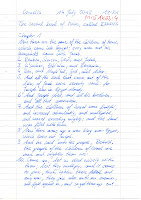 The second book of Moses, called EXODUS
Chapter 1
1 Now these are the names of the children of Israel,
which came into Egypt; every man and his
household came with Jacob.
2 Reuben, Simeon, Levi, and Judah,
3 Issachar, Zebulun, and Benjamin,
4 Dan, and Naphtali, Gad, and Asher.
5 And all the souls that came out of the
loins of Jacob were seventy souls: for Joseph
was in Egypt already.
6 And Joseph died, and all his brethren,
and all that generation.
7 And the children of Israel were fruitful,
and increased abundantly, and multiplied,
and waxed exceeding mighty; and the land
was filled with them.
8 Now there arose up a new king over Egypt,
which knew not Joseph.
9 And he said unto his people, Behold,
the people of the children of Israel are
more and mightier than we:
10 Come on, let us deal wisely with
them; lest they multiply, and it come
to pass, that, when there falleth out
any war, they join also unto our enemies,
and fight against us, and so get them up out